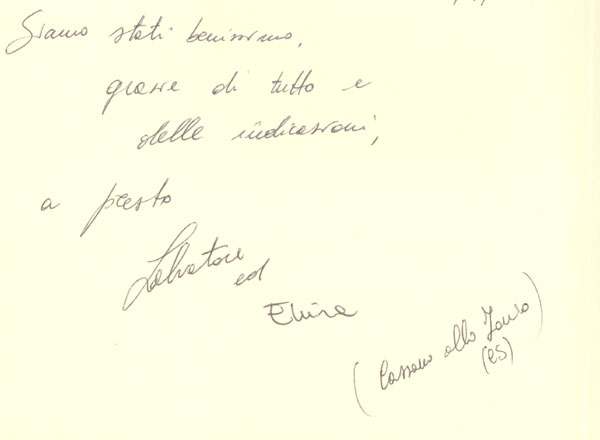 Siamo stati benissimo,
grazie di tutto e
delle indicazioni,
a presto
Salvatore
ed
Elvira
(Cassano allo Ionio)
(CS)